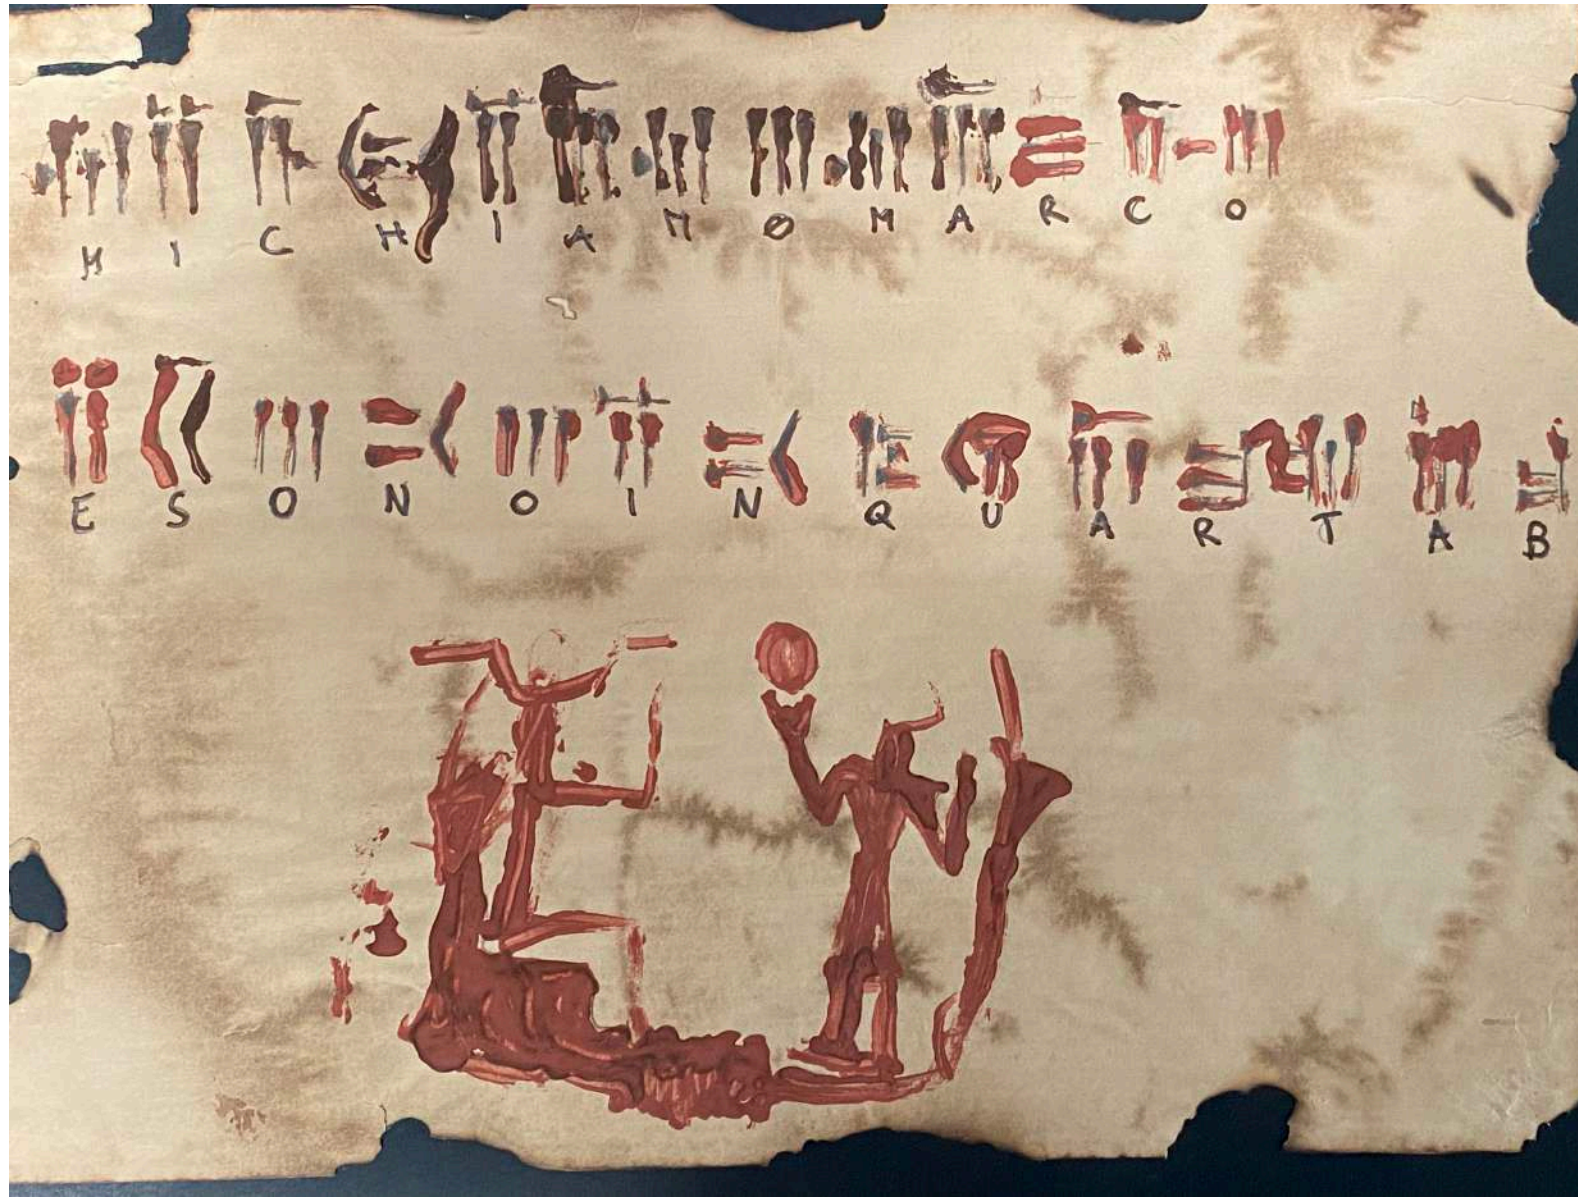 M I C H I A M O M A R C O
E S O N O I N Q U A R T A B